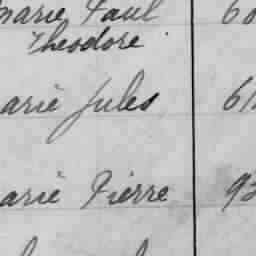 marie Paul
Théodore
arie Jules
arie Pierre